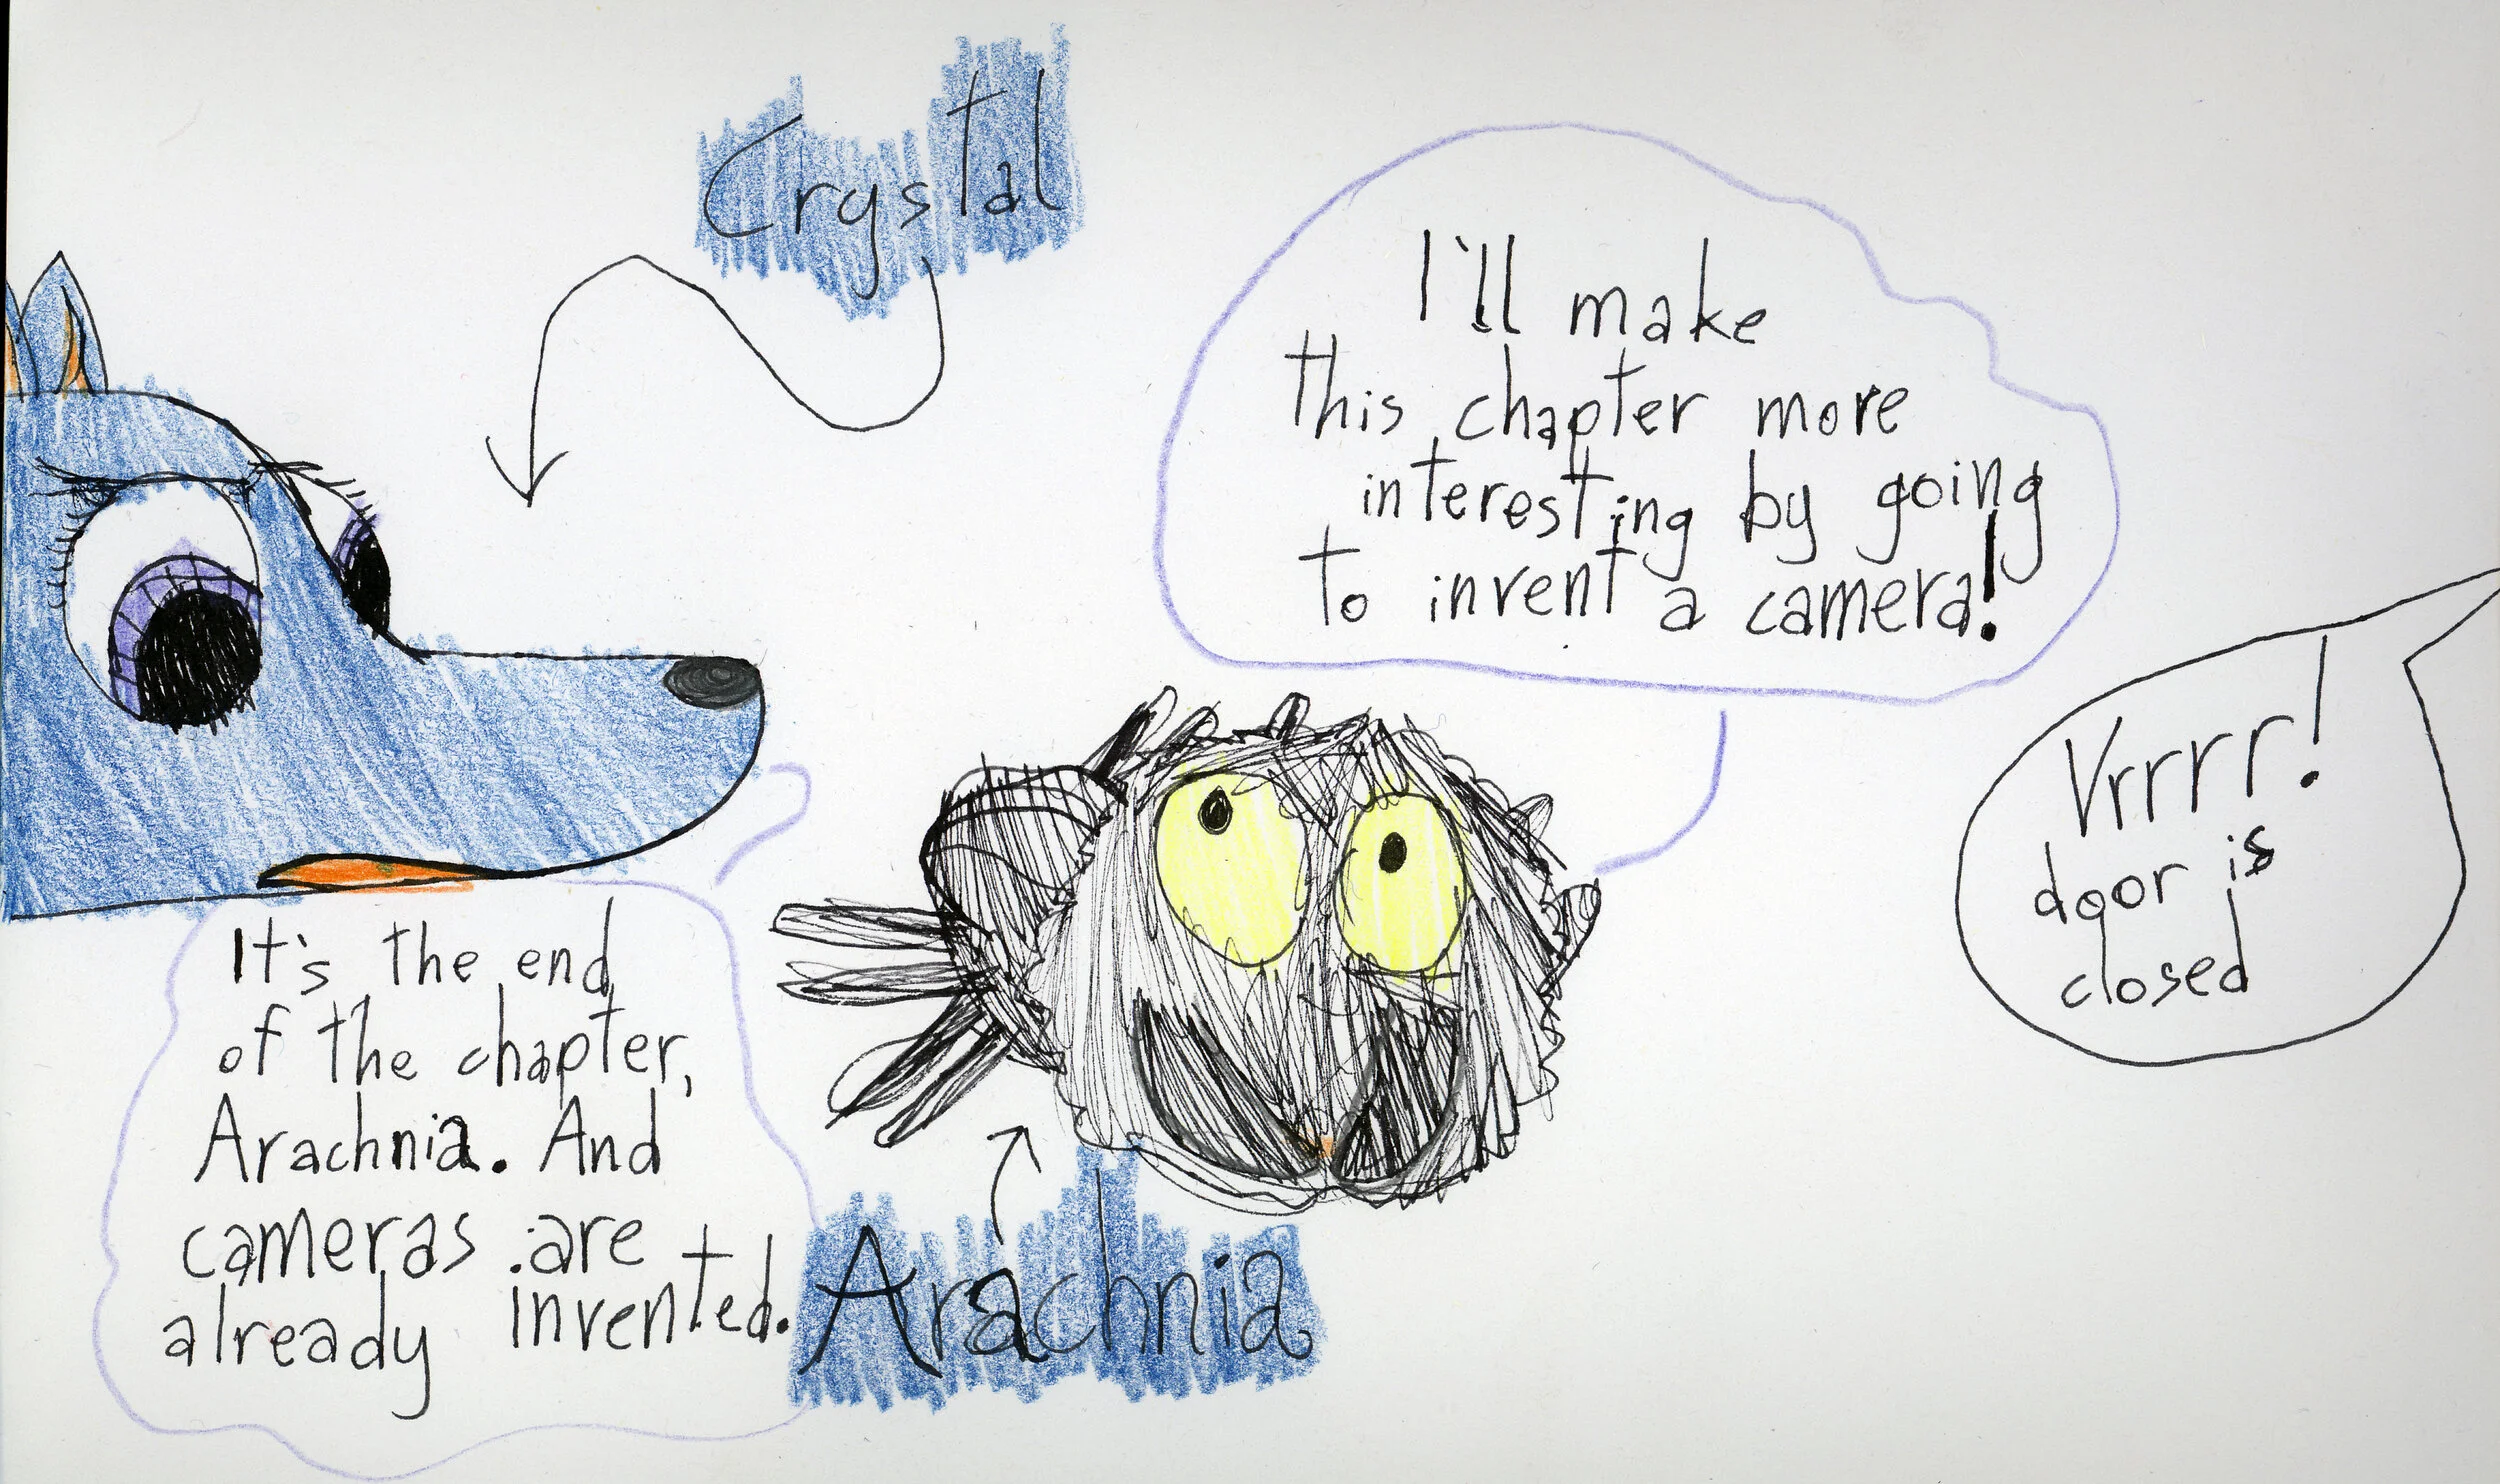 Crystal
I'll make
this chapter more
interesting by going
to invent a camera!
Vrrrr!
door is
closed
It's the end
of the chapter,
Arachnia. And
cameras are
already invented.
Arachnia